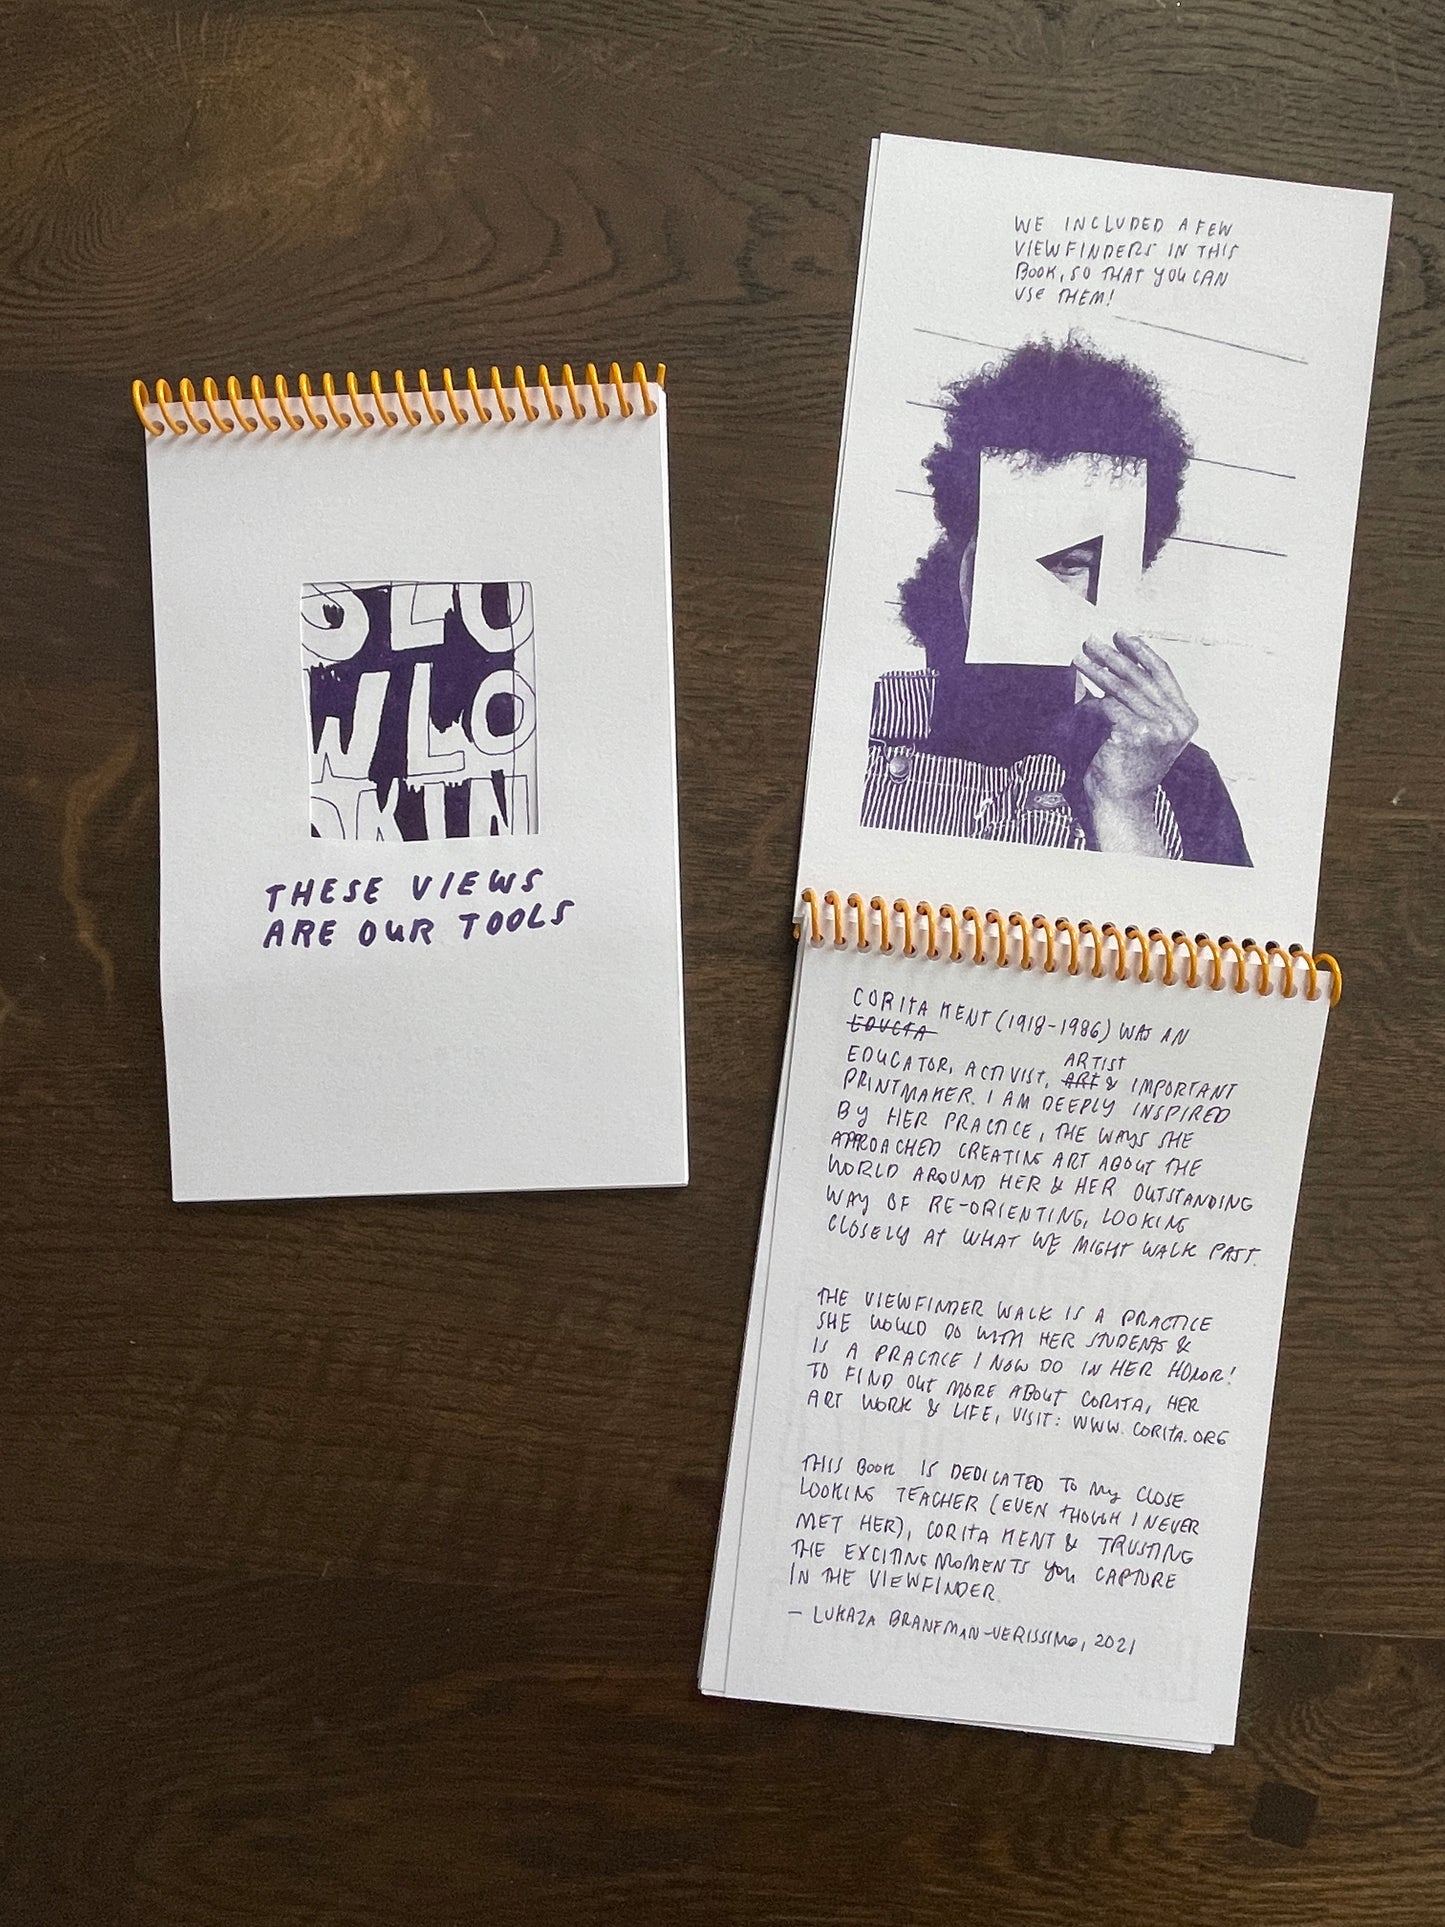 SLO
WLO
OKIN
THESE VIEWS
ARE OUR TOOLS
WE INCLUDED A FEW
VIEWFINDERS IN THIS
BOOK, SO THAT YOU CAN
USE THEM!
CORITA KENT (1918-1986) WAS AN
EDUCTA
EDUCATOR, ACTIVIST, ARTIST ART & IMPORTANT
PRINTMAKER. I AM DEEPLY INSPIRED
BY HER PRACTICE, THE WAYS SHE
APPROACHED CREATING ART ABOUT THE
WORLD AROUND HER & HER OUTSTANDING
WAY OF RE-ORIENTING, LOOKING
CLOSELY AT WHAT WE MIGHT WALK PAST.
THE VIEWFINDER WALK IS A PRACTICE
SHE WOULD DO WITH HER STUDENTS &
IS A PRACTICE I NOW DO IN HER HONOR!
TO FIND OUT MORE ABOUT CORITA, HER
ART WORK & LIFE, VISIT: WWW.CORITA.ORG
THIS BOOK IS DEDICATED TO MY CLOSE
LOOKING TEACHER (EVEN THOUGH I NEVER
MET HER), CORITA KENT & TRUSTING
THE EXCITING MOMENTS YOU CAPTURE
IN THE VIEWFINDER.
— LUKAZA BRANFMAN-VERISSIMO, 2021